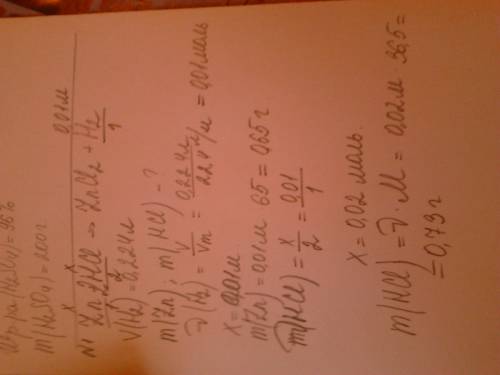 m(H₂SO₄)=200г
x x 0,01м
№1 Zn+2HCl → ZnCl₂ + H₂
2 1
V(H₂)=0,224л
m(Zn); m(HCl) - ?
ν(H₂) = V/Vm = 0,224л/22,4 л/м = 0,01моль
x = 0,01м
m(Zn) = 0,01м 65 = 0,65г
m(HCl) = x/2 = 0,01/1
x = 0,02 моль
m(HCl) = ν M = 0,02м 36,5 =
= 0,73г